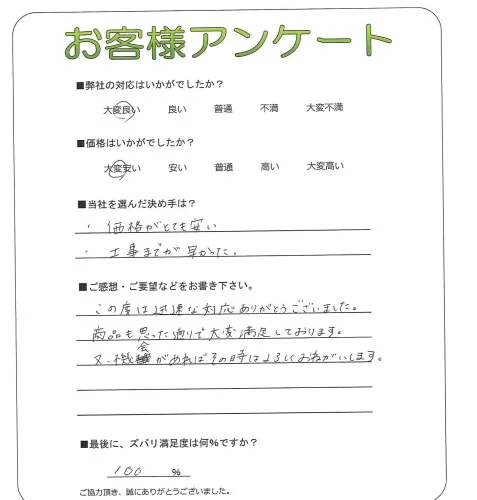 お客様アンケート
■弊社の対応はいかがでしたか？
大変良い 良い 普通 不満 大変不満
■価格はいかがでしたか？
大変安い 安い 普通 高い 大変高い
■当社を選んだ決め手は？
・価格がとても安い
・工事までが早かった.
■ご感想・ご要望などをお書き下さい。
この度は迅速な対応ありがとうございました。
商品も思った通りで大変満足しております。
又、機会があればその時はよろしくおねがいします。
■最後に、ズバリ満足度は何%ですか？
100 %
ご協力頂き、誠にありがとうございました。